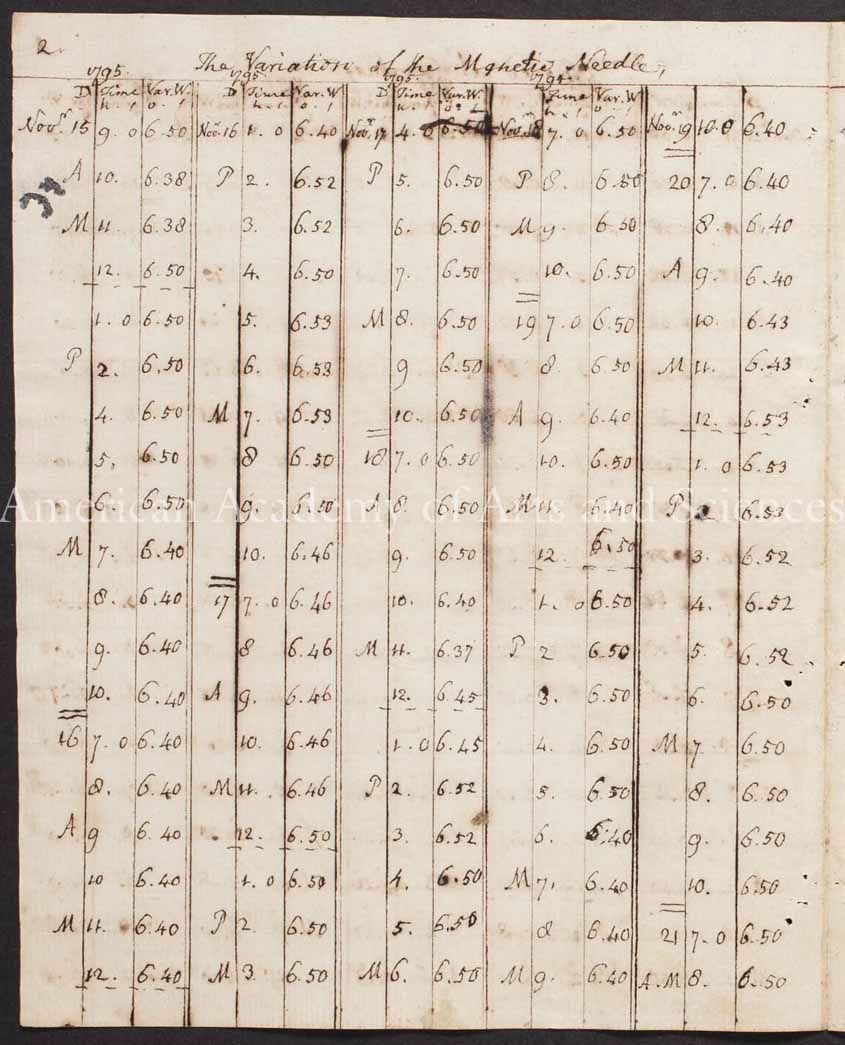 2.
The Variation of the Mgnetic Needle,
1795. 1795. 1795. 1794.
D Time Var. W. D Time Var. W D Time Var. W. Time Var. W
h. , o. , h. , o. , h. , o. , h. , o. ,
Novr. 15 9. 0 6.50 Novr. 16 1. 0 6.40 Novr. 17 4. 0 6.50 Novr. 18 7. 0 6.50 Novr. 19 10. 0 6.40
A 10. 6.38 P 2. 6.52 P 5. 6.50 P 8. 6.50 20 7. 0 6.40
37
M 11. 6.38 3. 6.52 6. 6.50 M 9. 6.50 8. 6.40
12. 6.50 4. 6.50 7. 6.50 10. 6.50 A 9. 6.40
1. 0 6.50 5. 6.53 M 8. 6.50 19 7. 0 6.50 10. 6.43
P 2. 6.50 6. 6.53 9 6.50 8. 6.50 M 11. 6.43
4. 6.50 M 7. 6.53 10. 6.50 A 9. 6.40 12. 6.53
5. 6.50 8 6.50 18 7. 0 6.50 10. 6.50 1. 0 6.53
6. 6.50 9. 6.50 A 8. 6.50 M 11. 6.40 P 2 6.53
American Academy of Arts and Sciences
M 7. 6.40 10. 6.46 9. 6.50 12. 6.50 3. 6.52
8. 6.40 17 7. 0 6.46 10. 6.40 1. 0 6.50 4. 6.52
9. 6.40 8 6.46 M 11. 6.37 P 2 6.50 5. 6.52
10. 6.40 A 9. 6.46 12. 6.45 3. 6.50 6. 6.50
16 7. 0 6.40 10. 6.46 1. 0 6.45 4. 6.50 M 7 6.50
8. 6.40 M 11. 6.46 P 2. 6.52 5. 6.50 8. 6.50
A 9 6.40 12. 6.50 3. 6.52 6. 6.40 9. 6.50
10 6.40 1. 0 6.50 4. 6.50 M 7. 6.40 10. 6.50
M 11. 6.40 P 2. 6.50 5. 6.50 8 6.40 21 7. 0 6.50
12. 6.40 M 3. 6.50 M 6. 6.50 M 9. 6.40 A. M 8. 6.50